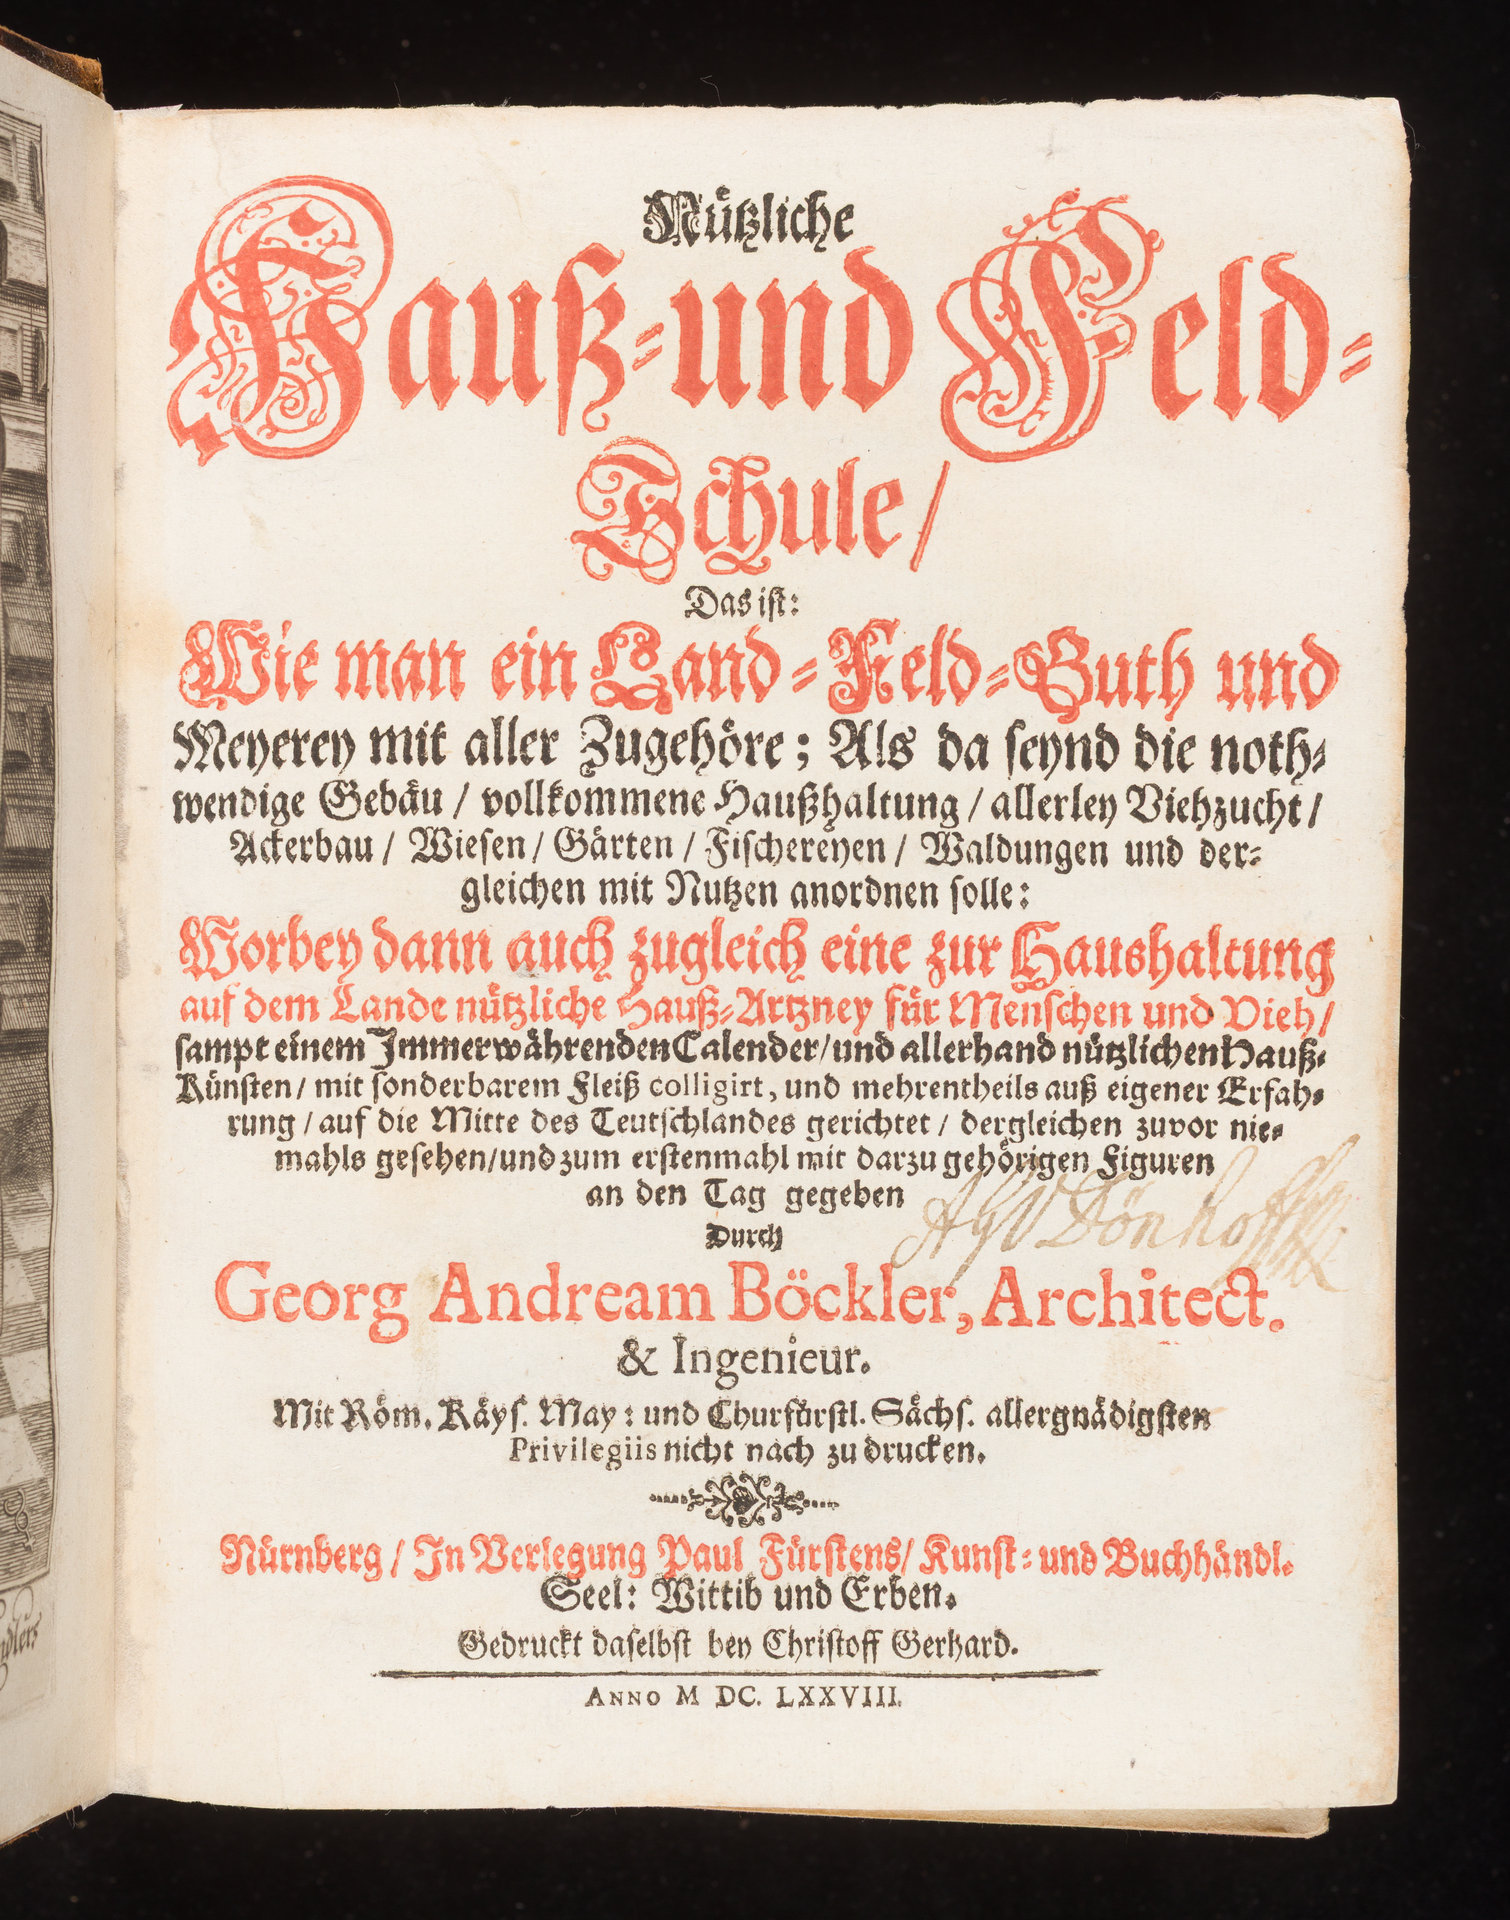 Nützliche
Hauß-und Feld-
Schule/
Das ist:
Wie man ein Land-Feld-Guth und
Meyerey mit aller Zugehöre; Als da seynd die noth-
wendige Gebäu / vollkommene Haußhaltung / allerley Viehzucht /
Ackerbau / Wiesen / Gärten / Fischereyen / Waldungen und der-
gleichen mit Nutzen anordnen solle:
Worbey dann auch zugleich eine zur Haushaltung
auf dem Lande nützliche Hauß-Artzney für Menschen und Vieh/
sampt einem Immerwährenden Calender/ und allerhand nützlichen Hauß-
Künsten/ mit sonderbarem Fleiß colligirt, und mehrentheils auß eigener Erfah-
rung / auf die Mitte des Teutschlandes gerichtet / dergleichen zuvor nie-
mahls gesehen/ und zum erstenmahl mit darzu gehörigen Figuren
an den Tag gegeben
Durch
Dönhoff
Georg Andream Böckler, Architect.
& Ingenieur.
Mit Röm. Käys. May: und Churfürstl. Sächs. allergnädigsten
Privilegiis nicht nach zu drucken.
Nürnberg / In Verlegung Paul Fürstens/ Kunst- und Buchhändl.
Seel: Wittib und Erben.
Gedruckt daselbst bey Christoff Gerhard.
ANNO M DC. LXXVIII.